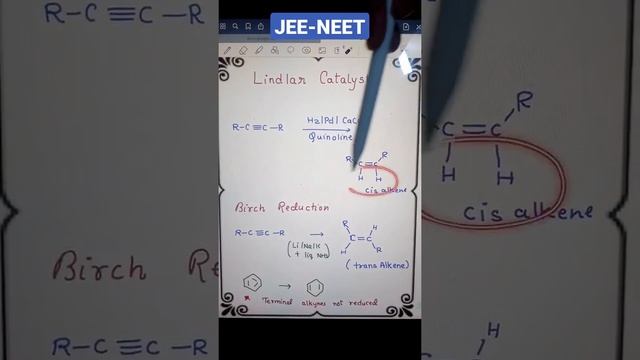 JEE-NEET
Lindlar Catalys
R-C≡C-R
H2|Pd| CaC
Quinoline
R C=C R
H H
cis alkene
Birch Reduction
R-C≡C-R →
(Li/Na/K
+ liq NH3)
R H
C=C
H R
(trans Alkene)
* Terminal alkynes not reduced
R-C≡C-R
C=C R
H H
cis alkene
Birch Re
R-C≡C-R
H